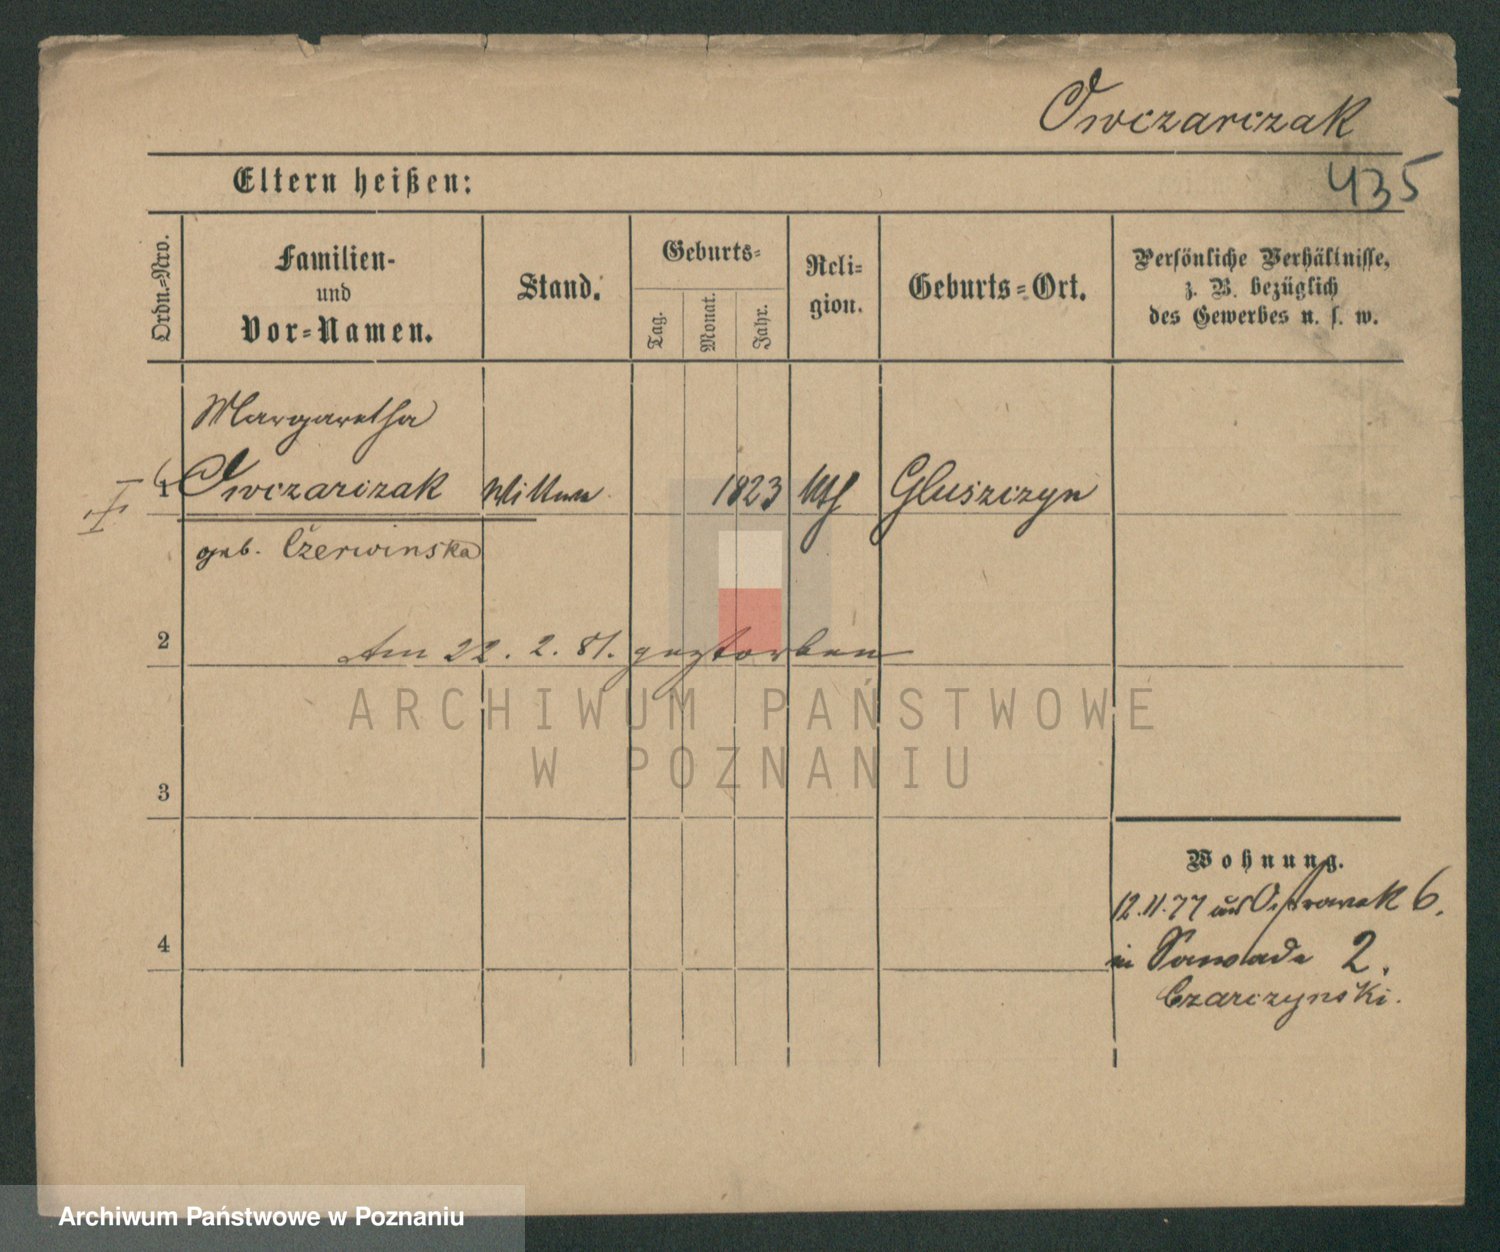 Owczarczak
435
Eltern heißen:
Ordn.=Nro.
Familien-
und
Vor=Namen.
Stand.
Geburts=
Tag.
Monat.
Jahr.
Reli=
gion.
Geburts=Ort.
Persönliche Verhältnisse,
z. B. bezüglich
des Gewerbes u. s. w.
Margaretha
1 Owczarczak Wittwe 1823 Gluszczyn
geb. Czerwinska
2
Am 22. 2. 81. gestorben
ARCHIWUM PAŃSTWOWE
W POZNANIU
3
Wohnung.
12.11.77 aus Ostrowek 6.
4
in Sawade 2.
Czarczynski.
Archiwum Państwowe w Poznaniu